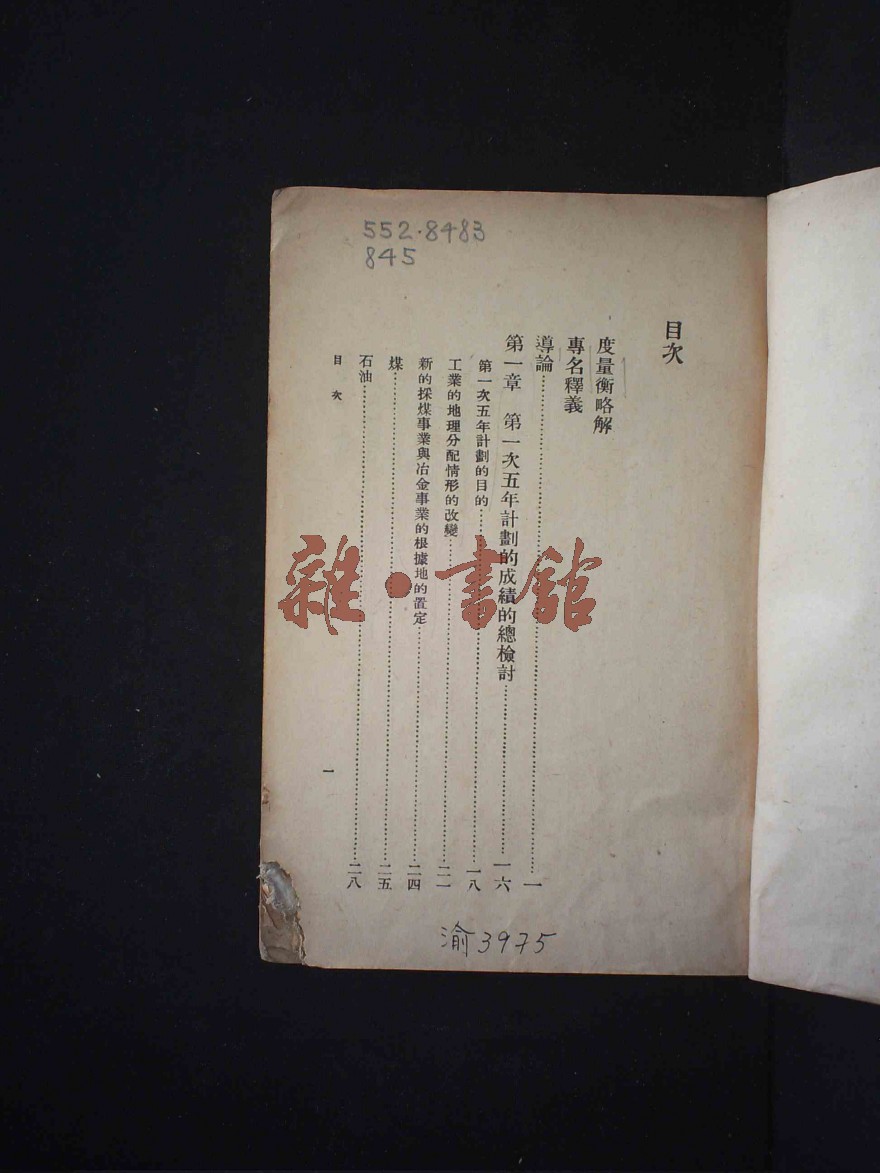 552.8483
845
目次
度量衡略解
專名釋義
導論……一
第一章 第一次五年計劃的成績的總檢討……一六
第一次五年計劃的目的……一八
工業的地理分配情形的改變……二一
新的採煤事業與冶金事業的根據地的置定……二四
煤……二五
石油……二八
目次
一
雜·書館
渝3975